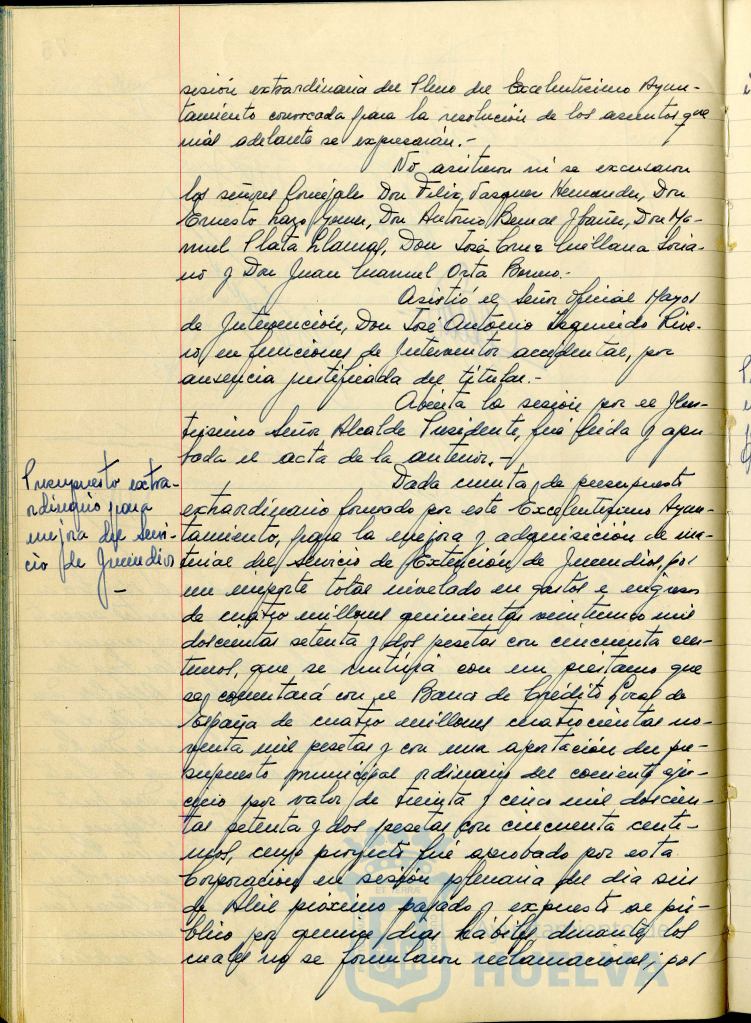 sesión extraordinaria del Pleno del Excelentísimo Ayun-
tamiento convocada para la resolución de los asuntos que
más adelante se expresarán.-
No asistieron ni se excusaron
los señores Concejales Don Felix Vazquez Hernandez, Don
Ernesto Lazo, Don Antonio Ibañez, Don Ma-
nuel Plata Llamas, Don José Cruz Millana Soria-
no y Don Juan Manuel Orta Borrero.-
Asistió el Señor Oficial Mayor
de Intervención, Don José Antonio Izquierdo Rive-
ro en funciones de Interventor accidental, por
ausencia justificada del titular.-
Abierta la sesión por el Ilus-
trísimo Señor Alcalde Presidente, fué leída y apro-
bada el acta de la anterior.-
Presupuesto extra-
ordinario para
mejora del Servi-
cio de Incendios
-
Dada cuenta de presupuesto
extraordinario formado por este Excelentísimo Ayun-
tamiento, para la mejora y adquisición de ma-
terial del Servicio de Extinción de Incendios, por
un importe total nivelado en gastos e ingresos
de cuatro millones quinientas veinticinco mil
doscientas setenta y dos pesetas con cincuenta cén-
timos, que se nutrirá con un préstamo que
se concertará con el Banco de Crédito Local de
España de cuatro millones cuatrocientas no-
venta mil pesetas y con una aportación del pre-
supuesto municipal ordinario del corriente ejer-
cicio por valor de treinta y cinco mil doscien-
tas setenta y dos pesetas con cincuenta cénti-
mos, cuyo proyecto fué aprobado por esta
Corporación en sesión plenaria del día seis
de Abril próximo pasado y expuesto al pú-
blico por quince días hábiles, durante los
cuales no se formularon reclamaciones, por
HUELVA